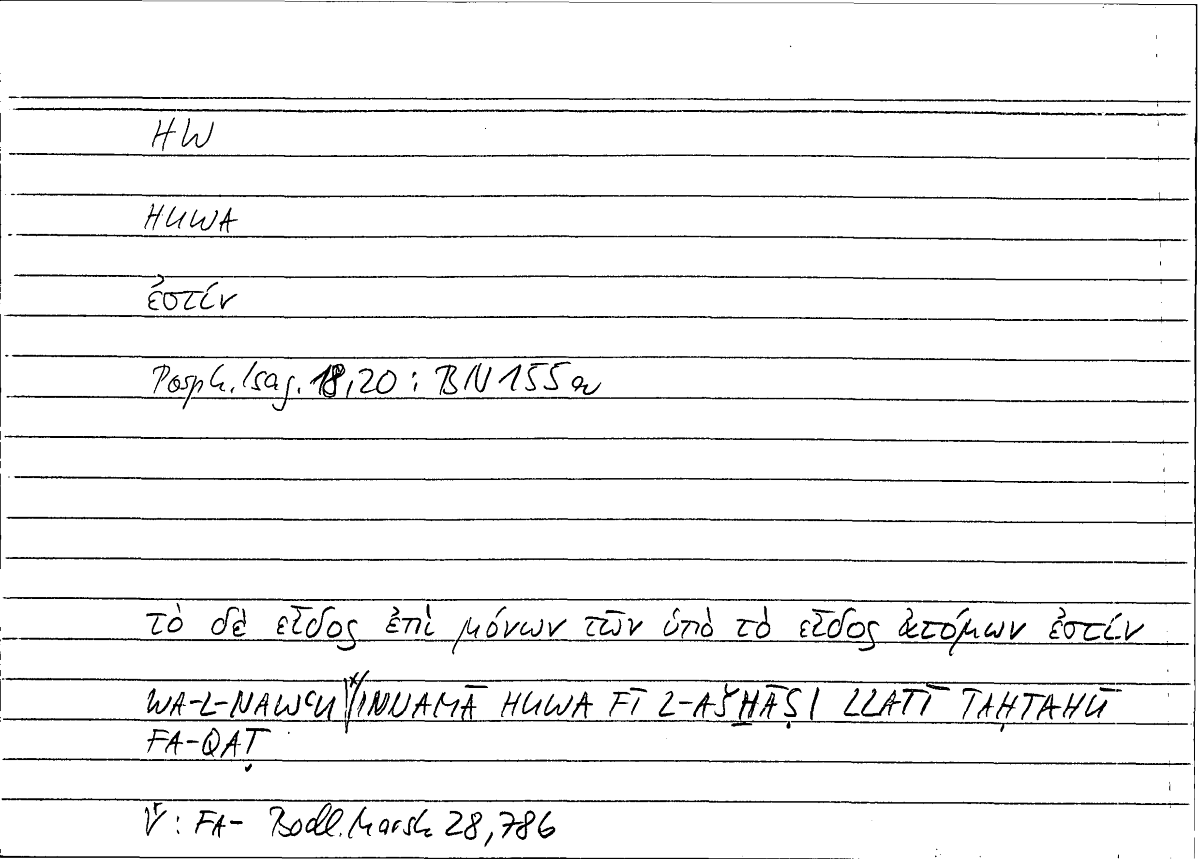 HW
HUWA
ἐστίν
Porph. Isag. 18,20 : BN 155a
τὸ δὲ εἶδος ἐπὶ μόνων τῶν ὑπὸ τὸ εἶδος ἀτόμων ἐστίν
WA-L-NAWCU INNAMĀ HUWA FĪ L-AŠH̱ĀṢI LLATĪ TAḤTAHŪ
FA-QAṬ
: FA- Bodl. Marsh 28,786